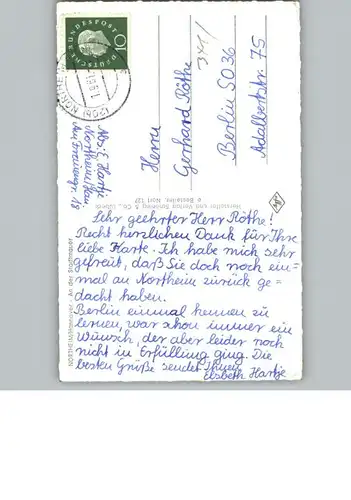 DEUTSCHE BUNDESPOST
10
(20b) NORTHEIM
Abs: E. Hartje
Northeim/Han
Am Freiengr. 18
Herrn
Gerhard Röthe
Berlin SO 36
Adalbertstr. 75
Sehr geehrter Herr Röthe!
Recht herzlichen Dank für Ihre
liebe Karte. Ich habe mich sehr
gefreut, daß Sie doch noch ein=
mal an Northeim zurück ge=
dacht haben.
Berlin einmal kennen zu
lernen, war schon immer ein
Wunsch, der aber leider noch
nicht in Erfüllung ging. Die
besten Grüße sendet Ihnen
Elsbeth Hartje
NORTHEIM/Hannover - An der Stadtmauer
Hersteller und Verlag Schöning & Co., Lübeck
Bestellnr. Nort 137